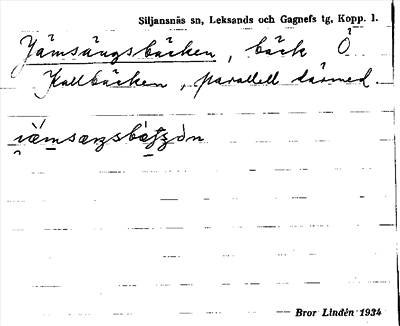 Siljansnäs sn, Leksands och Gagnefs tg, Kopp. l.
Jämsängsbäcken, bäck Ö
Kallbäcken, parallell därmed.
Bror Lindén 1934